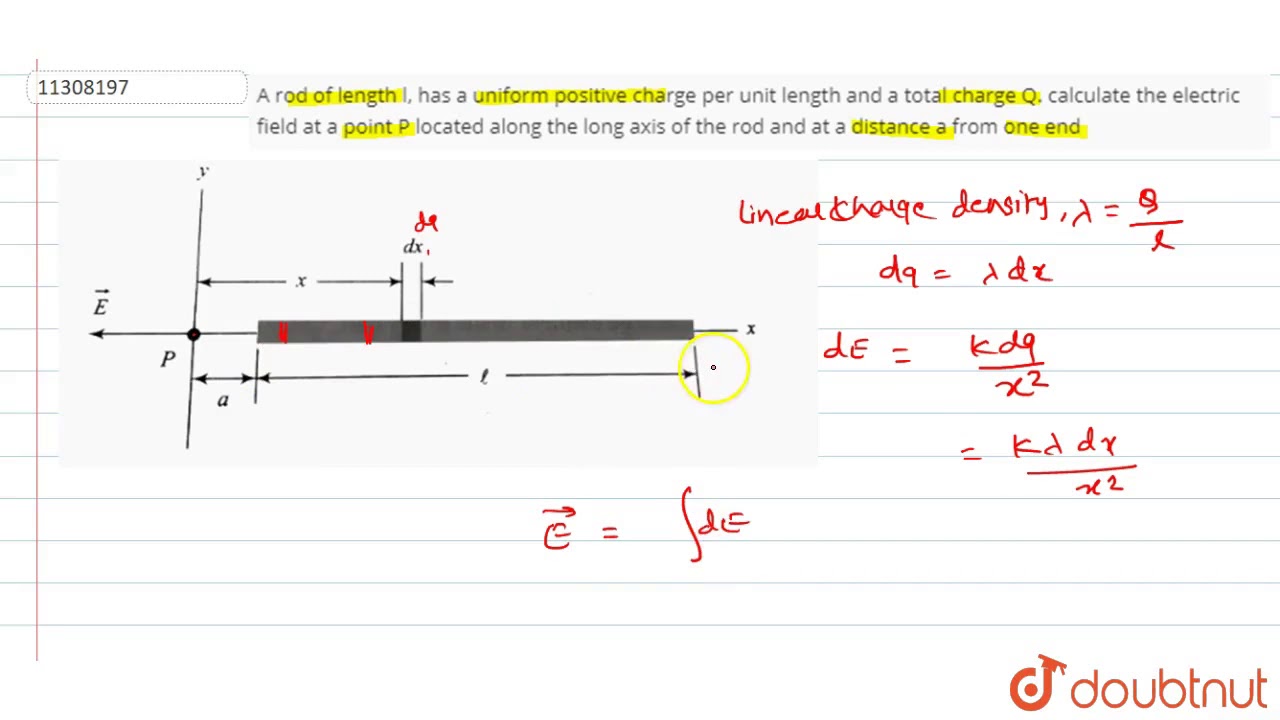 11308197
A rod of length l, has a uniform positive charge per unit length and a total charge Q. calculate the electric
field at a point P located along the long axis of the rod and at a distance a from one end
y
dq
dx
x
E
P
x
a
ℓ
linear charge density, λ = Q/l
dq = λdx
dE = Kdq/x²
= Kλ dx/x²
E = ∫dE
doubtnut